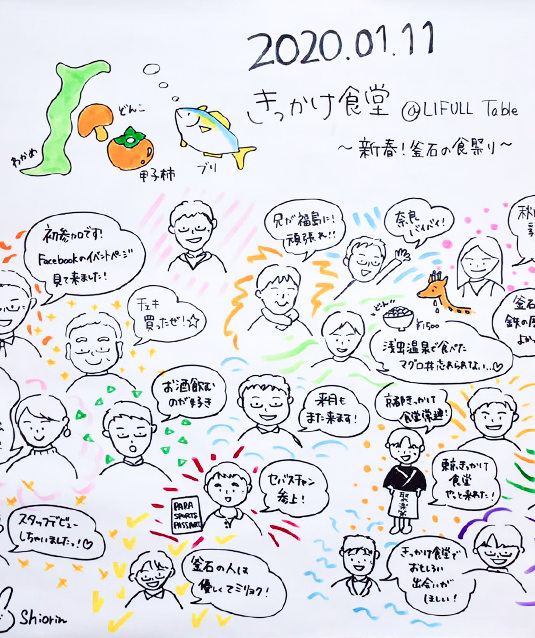 2020.01.11
きっかけ食堂 @LIFULL Table
〜新春!釜石の食祭り〜
わかめ
どんこ
甲子柿
ブリ
初参加です!
Facebookのイベントページ
見て来ました!
兄が福島に!
頑張れ!!
奈良
バイバイ!
チェキ
買ったぜ!☆
どんっ
¥1500
浅虫温泉で食べた
マグロ丼忘れられない…♡
お酒飲む
のが好き
来月も
また来ます!
京都きっかけ
食堂常連!
東京きっかけ
食堂
やっと来れた!
PARA
SPORTS
PASSPORT
セバスチャン
参上!
スタッフデビュー
しちゃいましたっ!♡
釜石の人は
優しくてミリョク!
きっかけ食堂で
おもしろい
出会いが
ほしい!
Shiorin